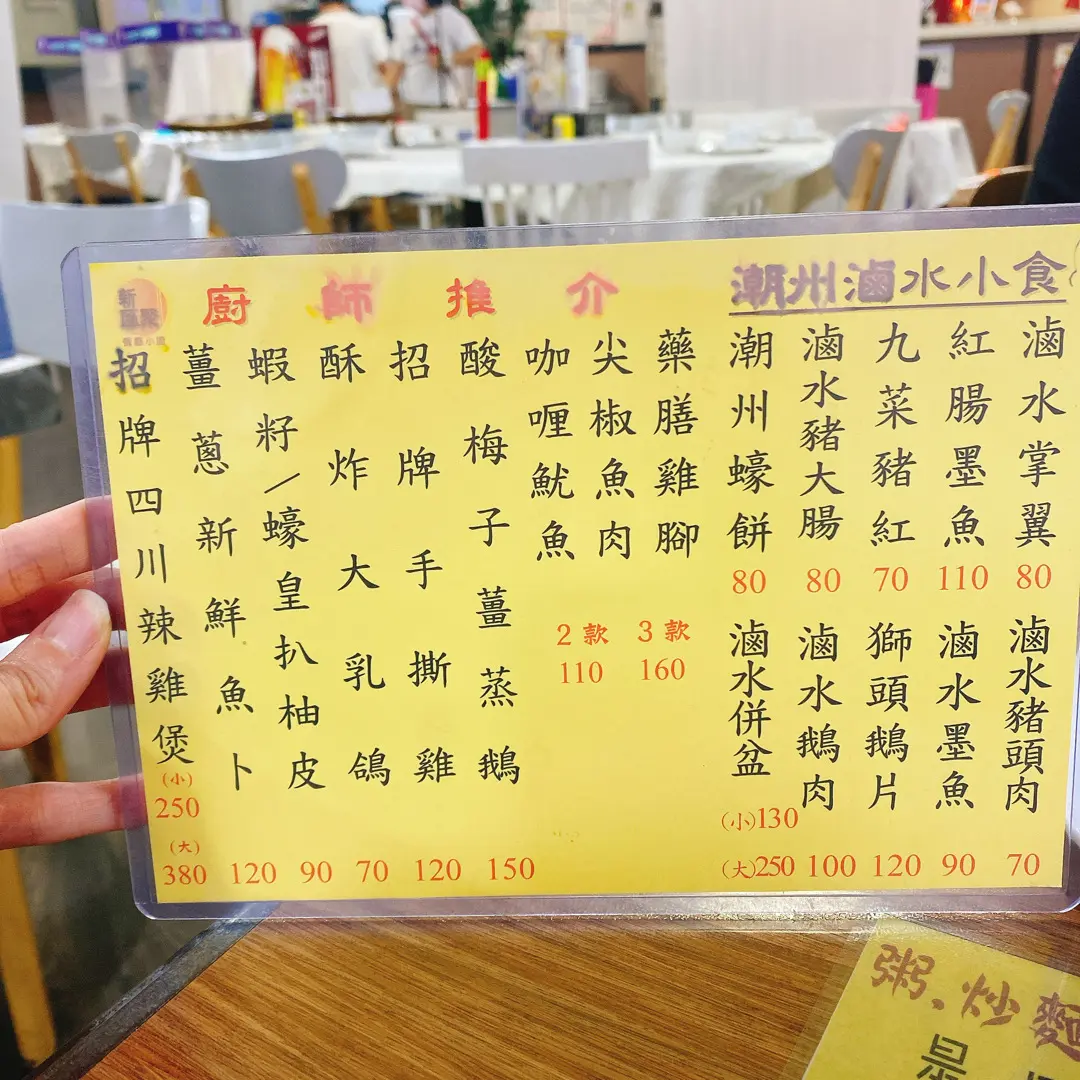 廚師推介
招牌四川辣雞煲
(小)
250
(大)
380
薑蔥新鮮魚卜
120
蝦籽/蠔皇扒柚皮
90
酥炸大乳鴿
70
招牌手撕雞
120
酸梅子薑蒸鵝
150
咖喱魷魚
尖椒魚肉
藥膳雞腳
2款
110
3款
160
潮州滷水小食
潮州蠔餅
80
滷水豬大腸
80
九菜豬紅
70
紅腸墨魚
110
滷水掌翼
80
滷水併盆
(小)130
(大)250
滷水鵝肉
100
獅頭鵝片
120
滷水墨魚
90
滷水豬頭肉
70
粥、炒麵